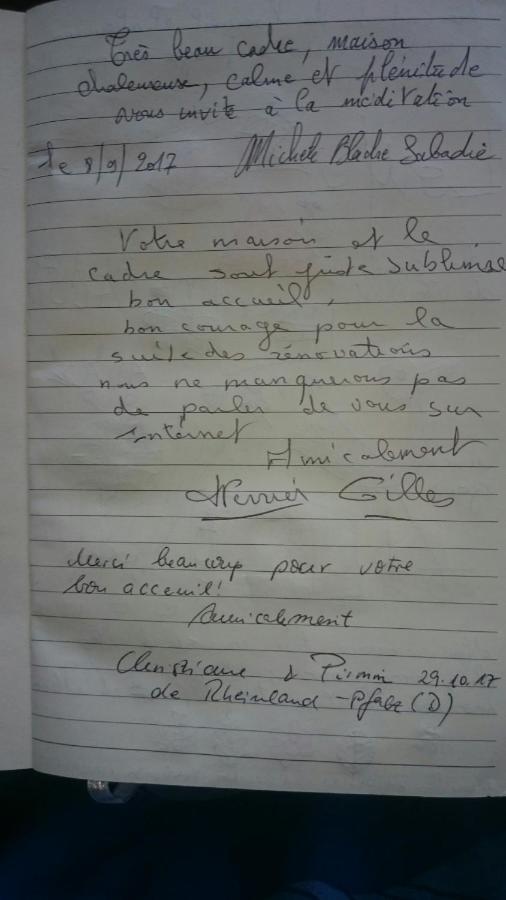 Très beau cadre, maison
chaleureuse, calme et plénitude
vous invite à la méditation
le 8/9/2017 Michèle
Votre maison et le
cadre sont juste sublime
bon accueil,
bon courage pour la
suite des rénovations
nous ne manquerons pas
de parler de vous sur
Internet
Amicalement
Gilles
Merci beaucoup pour votre
bon acceuil!
Amicalement
Christiane & Pirmin 29.10.17
de Rheinland-Pfalz (D)